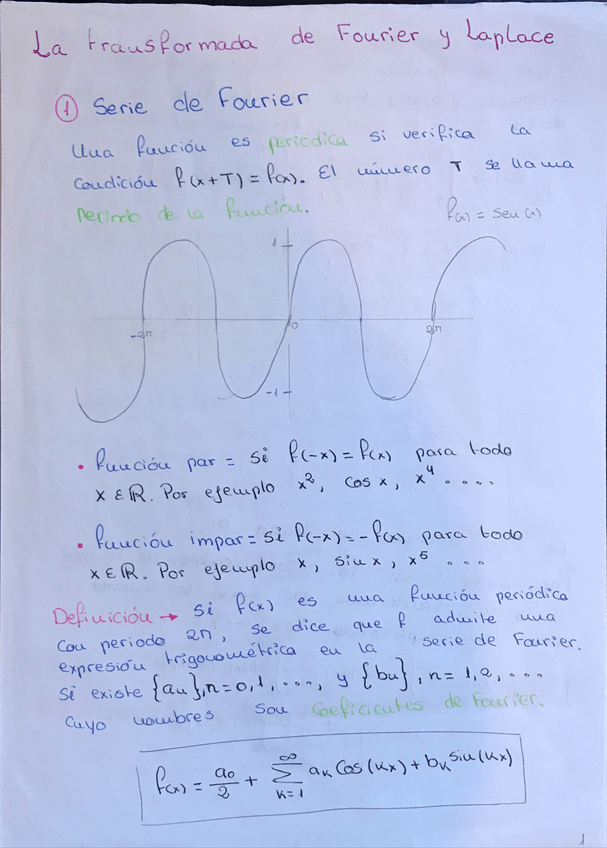 La transformada de Fourier y Laplace
① Serie de Fourier
Una función es periódica si verifica la
condición f(x+T) = f(x). El número T se llama
Periodo de la función.
f(x) = sen(x)
1
-2π
0
2π
-1
• función par = si f(-x) = f(x) para todo
x ∈ ℝ. Por ejemplo x², cos x, x⁴ ....
• función impar = si f(-x) = -f(x) para todo
x ∈ ℝ. Por ejemplo x, sin x, x⁵ ...
Definición → si f(x) es una función periódica
con periodo 2π, se dice que f admite una
expresión trigonométrica en la serie de Fourier.
Si existe {an}, n=0,1,..., y {bn}, n=1,2,...
cuyo nombres son coeficientes de Fourier.
f(x) = a₀/2 + ∑_{k=1}^{∞} aₖ cos(kx) + bₖ sin(kx)
1